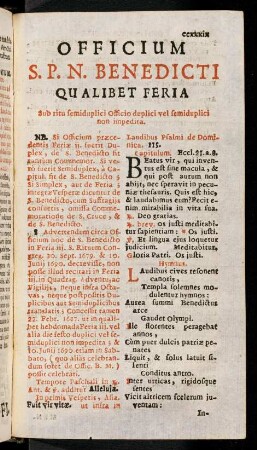 CCXXXIX
OFFICIUM
S. P. N. BENEDICTI
QUALIBET FERIA
Sub ritu semiduplici Officio duplici vel semiduplici
non impedita.
NB. Si Officium præce-
dentis Feriæ 11. fuerit Du-
plex, de S. Benedicto fit
tantum Commemor. Si ve-
rò fuerit Semiduplex, à Ca-
pitul. fit de S. Benedicto ;
Si Simplex, aut de Feria ;
integræ Vesperæ dicuntur
de S. Benedicto, omissis
commemorationibus
de S. Cruce, &
de S. Benedicto.
§ Advertendum circa Of-
ficium hoc de S. Benedicto
in Feria iij. S. Rituum Con-
greg. 30. Sept. 1679. & 10.
Junii 1690. decrevisse, non
posse illud recitari in Feria
iij. in Quadrag. Adventu, ac
Vigiliis, neque infra Octa-
vas, neque post positis Du-
plicibus aut Semiduplicibus
translatis ; Concessit tamen
27. Febr. 1627. ut in quali-
bet hebdomada Feria iij. vel
alia die festo duplici vel se-
miduplici non impedita ; &
10. Junii 1690 etiam in Sab-
bato, ( quo alias secundùm
foret de Offic. B. M. )
possit celebrari.
Tempore Paschali in
Ant. & ℣. additur Alleluja.
In primis Vesperis, Añæ.
Fuit vir vitæ ut infra in
Laudibus Psalmi de Domi-
nica. 115.
Capitulum. Eccl. 31. a. 8.
Beatus vir, qui inven-
tus est sine macula, &
qui post aurum non
abiit, nec speravit in pecu-
niæ thesauris. Quis est hic,
& laudabimus eum? Fecit e-
nim mirabilia in vita sua.
℟. Deo gratias.
℟. brev. Os justi medita bi-
tur sapientiam : * Os justi.
℣. Et lingua ejus loquetur
judicium. Meditabitur.
Gloria Patri. Os justi.
Hymnus.
Laudibus cives resonent
canoris,
Templa solemnes mo-
dulentur hymnos :
Aurea summi Benedictus
arce
Gaudet Olympi.
Ille florentes peragebat
annos ;
Cum puer dulcis patriæ pe-
nates
Liquit, & solus latuit si-
lenti
Conditus antro.
Inter urticas, rigidosque
sentes
Vicit altricem scelerum ju-
ventam :
In-